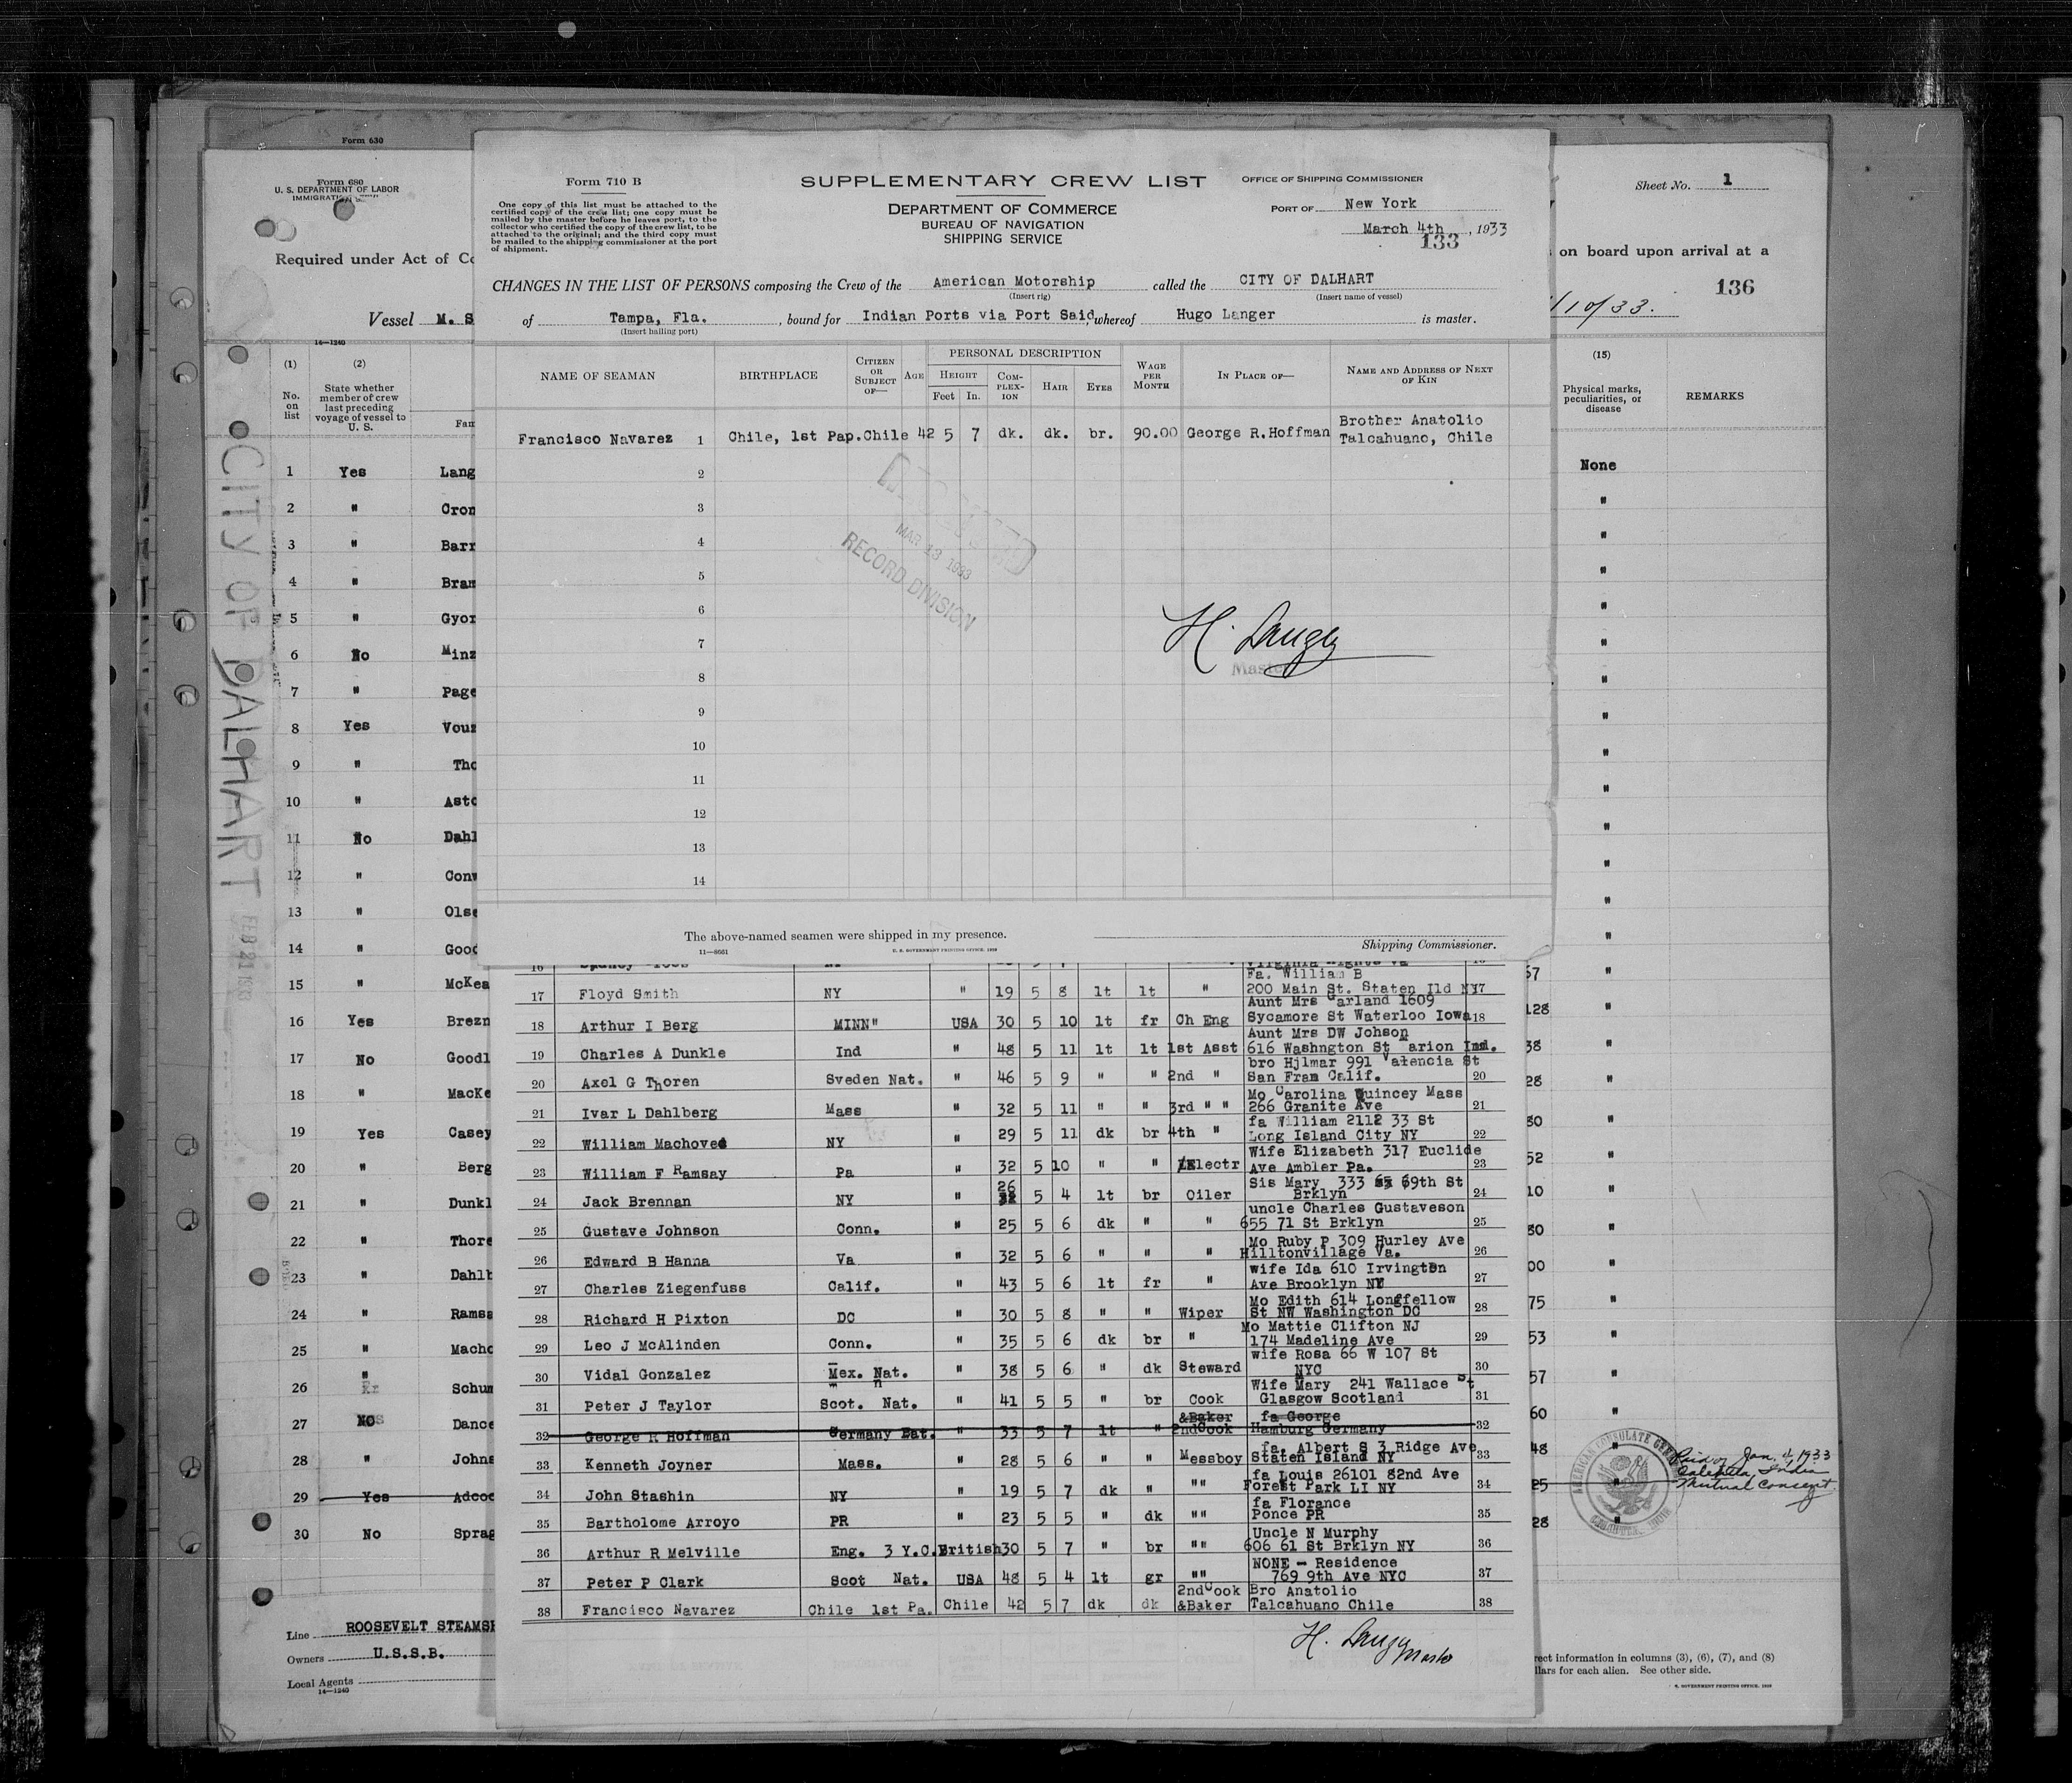 Form 630
Form 680
U. S. DEPARTMENT OF LABOR
Required under Act of
Vessel M. S
14—1240
(1) (2)
No. on list
State whether member of crew last preceding voyage of vessel to U. S.
Fam
1 Yes Lang
2 " Cron
3 " Barr
4 " Bram
5 " Gyor
6 No Minz
7 " Page
8 Yes Vour
9 " Tho
10 " Asto
11 No Dahl
12 " Conw
13 " Olse
14 " Good
15 " McKea
16 Yes Brezn
17 No Goodl
18 " MacKe
19 Yes Casey
20 " Berg
21 " Dunkl
22 " Thore
23 " Dahlb
24 " Ramsa
25 " Macho
26 " Schum
27 No Dance
28 " Johns
29 Yes Adcoc
30 No Sprag
Line ROOSEVELT STEAMSH
Owners U.S.S.B.
Local Agents
14—1240
CITY OF DALHART
FEB 21 1933
Form 710 B
One copy of this list must be attached to the
certified copy of the crew list; one copy must be
mailed by the master before he leaves port, to the
collector who certified the copy of the crew list, to be
attached to the original; and the third copy must
be mailed to the shipping commissioner at the port
of shipment.
SUPPLEMENTARY CREW LIST
DEPARTMENT OF COMMERCE
BUREAU OF NAVIGATION
SHIPPING SERVICE
OFFICE OF SHIPPING COMMISSIONER
PORT OF New York
March 4th, 1933
133
CHANGES IN THE LIST OF PERSONS composing the Crew of the American Motorship called the CITY OF DALHART
(Insert rig) (Insert name of vessel)
of Tampa, Fla., bound for Indian Ports via Port Said, whereof Hugo Langer is master.
(Insert hailing port)
NAME OF SEAMAN BIRTHPLACE CITIZEN OR SUBJECT OF— AGE PERSONAL DESCRIPTION HEIGHT Feet In. COM-PLEX-ION HAIR EYES WAGE PER MONTH IN PLACE OF— NAME AND ADDRESS OF NEXT OF KIN
Francisco Navarez 1 Chile, 1st Pap. Chile 42 5 7 dk. dk. br. 90.00 George R.Hoffman Brother Anatolio Talcahuano, Chile
2
3
4
5
6
7
8
9
10
11
12
13
14
MAR 13 1933
RECORD DIVISION
H. Langer
Master
The above-named seamen were shipped in my presence.
11—8661
U. S. GOVERNMENT PRINTING OFFICE
Shipping Commissioner.
16
Fa. William B
17 Floyd Smith NY " 19 5 8 lt lt " 200 Main St. Staten Ild NY 17
Aunt Mrs Garland 1609
18 Arthur I Berg MINN" USA 30 5 10 lt fr Ch Eng Sycamore St Waterloo Iowa 18
Aunt Mrs DW Johson
19 Charles A Dunkle Ind " 48 5 11 lt lt 1st Asst 616 Washngton St Marion Ind.
bro Hjlmar 991 Valencia St
20 Axel G Thoren Sveden Nat. " 46 5 9 " " 2nd " San Fran Calif. 20
Mo Carolina Quincey Mass
21 Ivar L Dahlberg Mass " 32 5 11 " " 3rd " " 266 Granite Ave 21
fa William 2112 33 St
22 William Machoved NY " 29 5 11 dk br 4th " Long Island City NY 22
Wife Elizabeth 317 Euclide
23 William F Ramsay Pa " 32 5 10 " " Electr Ave Ambler Pa. 23
Sis Mary 333 69th St
24 Jack Brennan NY " 26 5 4 lt br Oiler Brklyn 24
uncle Charles Gustaveson
25 Gustave Johnson Conn. " 25 5 6 dk " " 655 71 St Brklyn 25
Mo Ruby P 309 Hurley Ave
26 Edward B Hanna Va " 32 5 6 " " " Hilltonvillage Va. 26
wife Ida 610 Irvington
27 Charles Ziegenfuss Calif. " 43 5 6 lt fr " Ave Brooklyn NY 27
Mo Edith 614 Longfellow
28 Richard H Pixton DC " 30 5 8 " " Wiper St NW Washington DC 28
Mo Mattie Clifton NJ
29 Leo J McAlinden Conn. " 35 5 6 dk br " 174 Madeline Ave 29
wife Rosa 66 W 107 St
30 Vidal Gonzalez Mex. Nat. " 38 5 6 " dk Steward NYC 30
Wife Mary 241 Wallace St
31 Peter J Taylor Scot. Nat. " 41 5 5 " br Cook Glasgow Scotland 31
&Baker fa George
32 George R Hoffman Germany Nat. " 33 5 7 lt " 2ndCook Hamburg Germany 32
fa. Albert S 3 Ridge Ave
33 Kenneth Joyner Mass. " 28 5 6 " " Messboy Staten Island NY 33
fa Louis 26101 82nd Ave
34 John Stashin NY " 19 5 7 dk " "" Forest Park LI NY 34
fa Florance
35 Bartholome Arroyo PR " 23 5 5 " dk "" Ponce PR 35
Uncle N Murphy
36 Arthur R Melville Eng. 3 Y.C. British 30 5 7 " br "" 606 61 St Brklyn NY 36
NONE - Residence
37 Peter P Clark Scot Nat. USA 48 5 4 lt gr "" 769 9th Ave NYC 37
2ndCook Bro Anatolio
38 Francisco Navarez Chile 1st Pa. Chile 42 5 7 dk dk &Baker Talcahuano Chile 38
H. Langer Master
Sheet No. 1
on board upon arrival at a
136
(15)
Physical marks, peculiarities, or disease
REMARKS
None
57
128
38
28
80
52
10
30
00
75
53
57
60
48
25
28
AMERICAN CONSULATE GENERAL
CALCUTTA, INDIA
Paid off Jan. 4, 1933
Calcutta, India
Mutual Consent.
rect information in columns (3), (6), (7), and (8)
llars for each alien. See other side.
U. S. GOVERNMENT PRINTING OFFICE